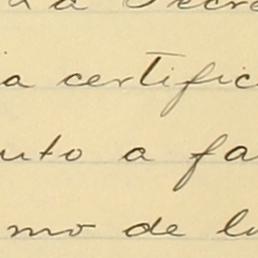 La Secre
ia certific
uto a fa
mo de lo